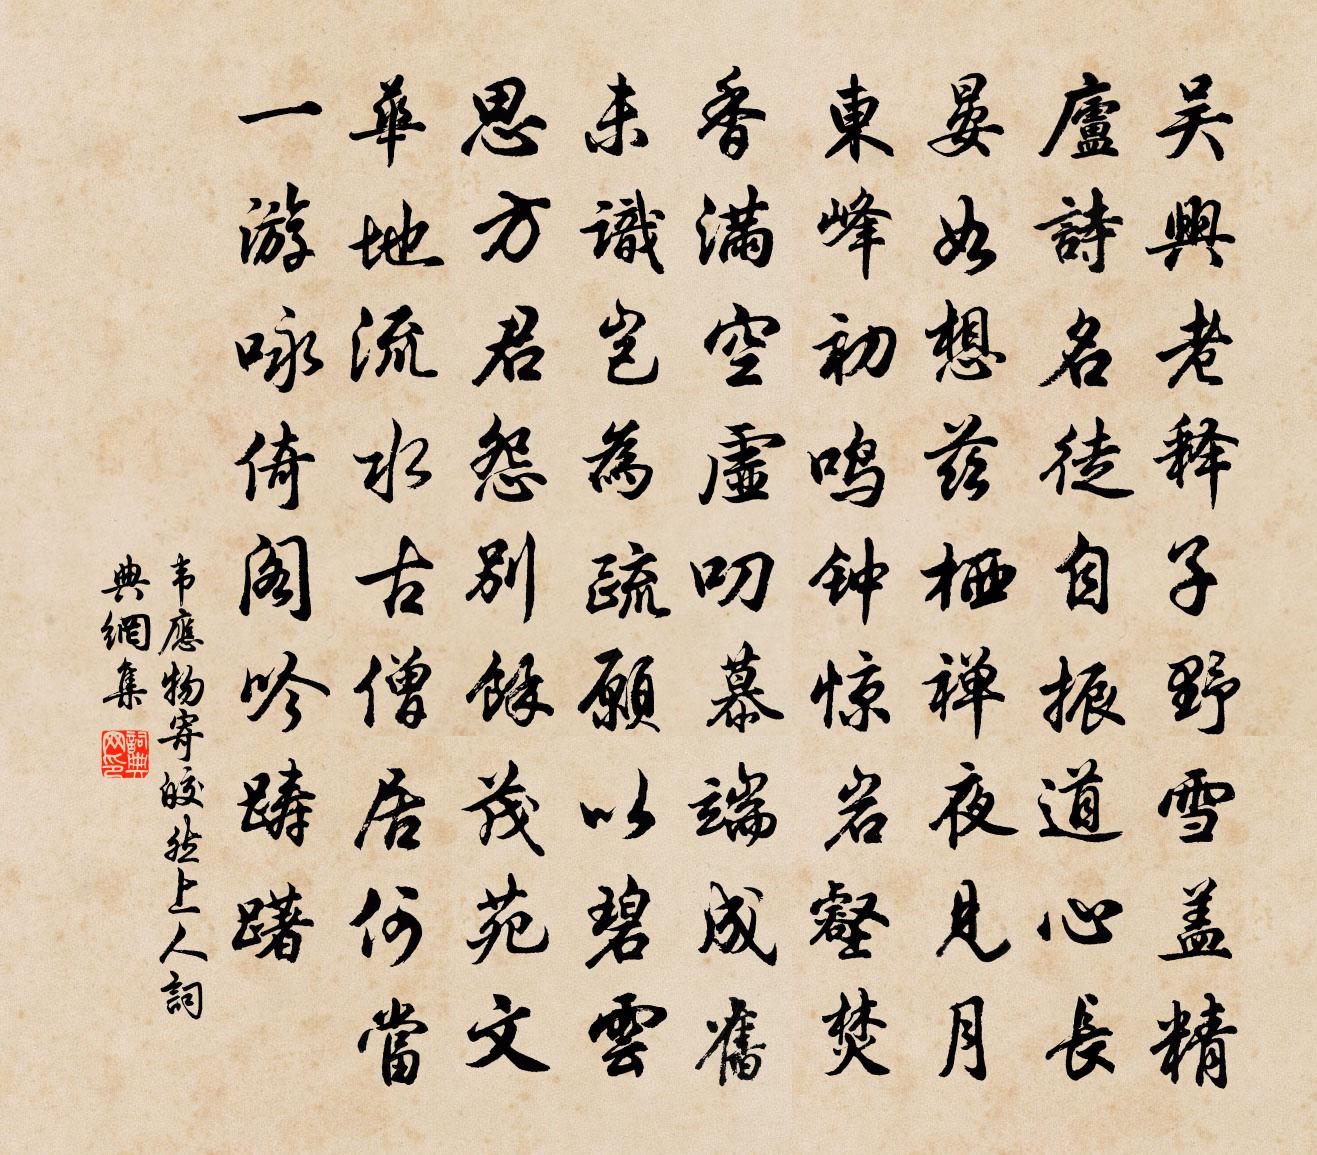 吴興老释子野雪盖精
廬詩名徒自振道心長
晏如想茲栖禅夜見月
東峰初鸣钟惊岩壑焚
香满空虚叨慕端成舊
未識岂為疏願以碧雲
思方君怨别餘茂苑文
華地流水古僧居何當
一游咏倚阁吟躊躇
韦應物寄皎然上人詞
典網集
詞典网印